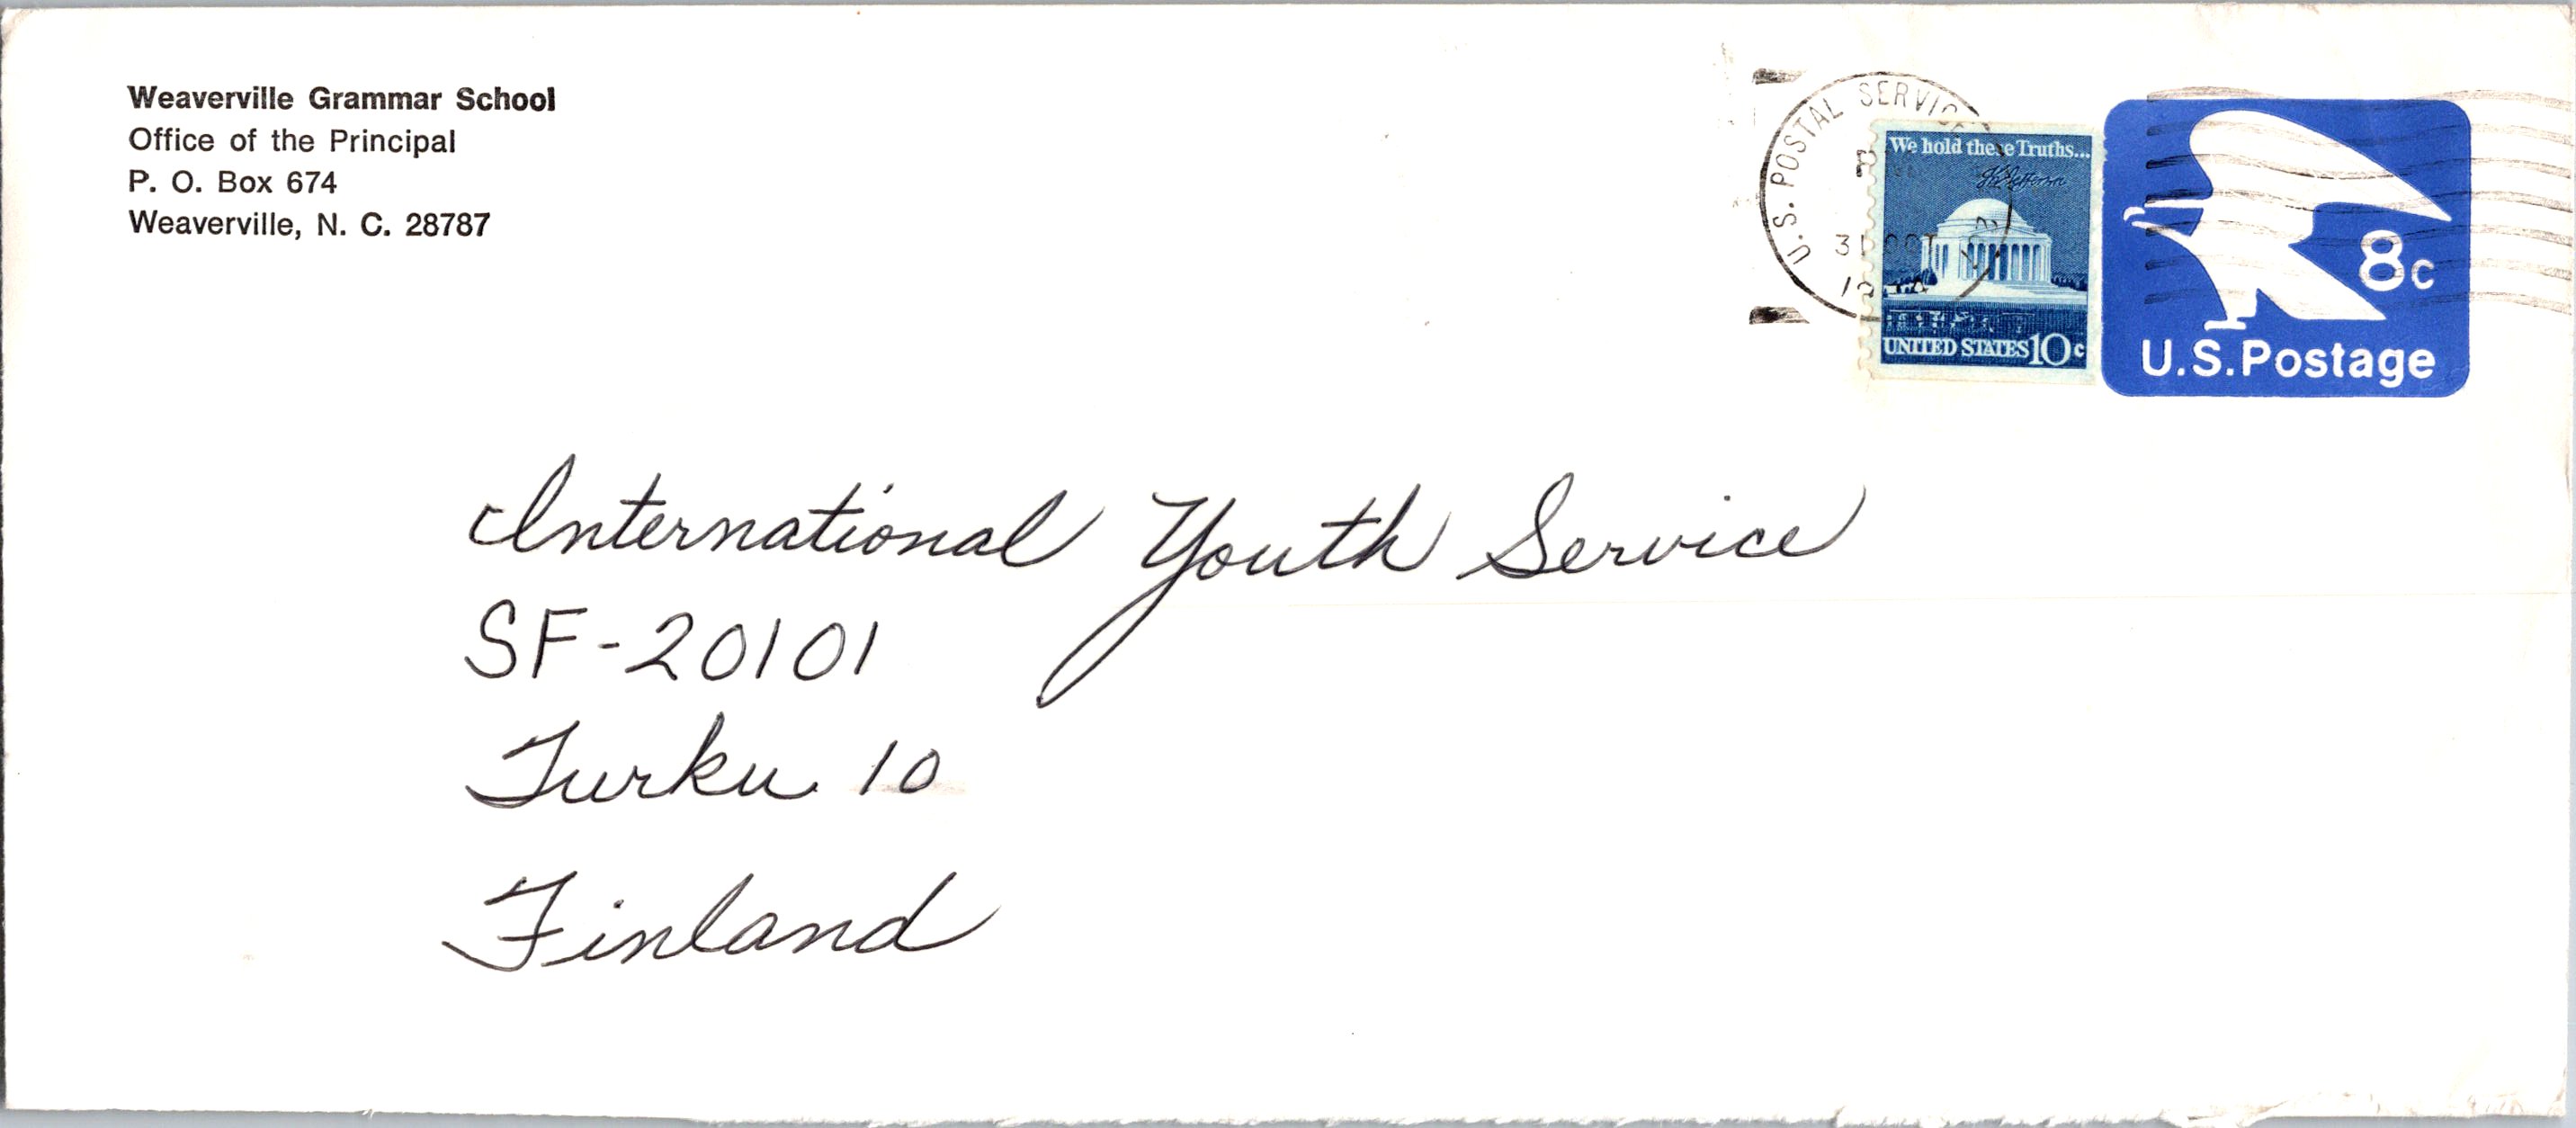 Weaverville Grammar School
Office of the Principal
P. O. Box 674
Weaverville, N. C. 28787
U.S. POSTAL SERVICE
31 OCT
We hold these Truths...
UNITED STATES 10c
8c
U.S. Postage
International Youth Service
SF-20101
Turku 10
Finland